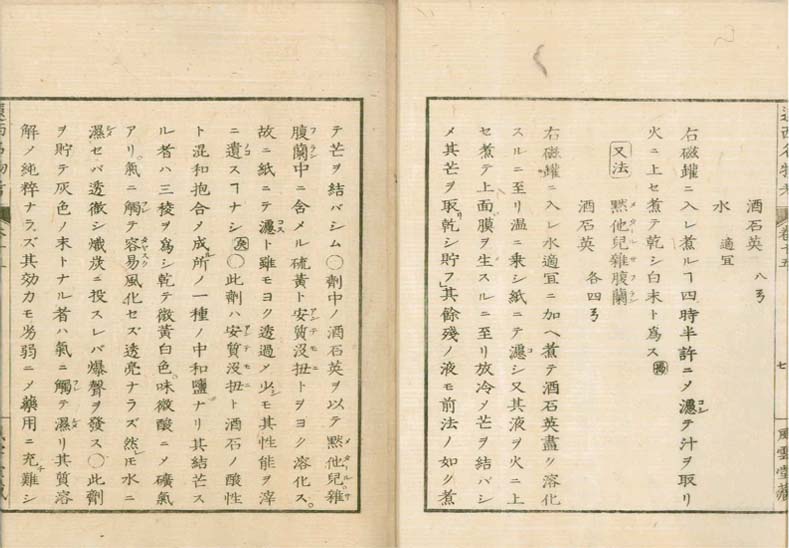 酒石英 八ヲ
水 適宜
右磁罐ニ入レ煮ルヿ四時半許ニメ濾テ汁ヲ取リ
火ニ上セ煮テ乾シ白末ト為ス
又法 黙他兒雑腹蘭
酒石英 各四ヲ
右磁罐ニ入レ水適宜ニ加ヘ煮テ酒石英盡ク溶化
スルニ至リ温ニ乗シ紙ニテ濾シ又其液ヲ火ニ上
セ煮テ上面膜ヲ生スルニ至リ放冷メ芒ヲ結バシ
メ其芒ヲ取リ乾シ貯フ其餘残ノ液モ前法ノ如ク煮
風雲堂蔵
七
テ芒ヲ結バシム〇劑中ノ酒石英ヲ以テ黙他兒雑
腹蘭中ニ含メル硫黄ト安質没扭トヲヨク溶化ス。
故ニ紙ニテ濾ト雖モヨク透過メ少シモ其性能ヲ滓
ニ遺スヿナシ 〇此劑ハ安質没扭ト酒石ノ酸性
ト混和抱合メ成ル所ノ一種ノ中和鹽ナリ其結芒ス
ル者ハ三稜ヲ為シ乾テ微黄白色。味微酸ニメ礦氣
アリ。氣ニ觸テ容易風化セズ透亮ナラズ然ㇳモ水ニ
濕セバ透徹シ熾炭ニ投スレバ爆聲ヲ發ス〇此劑
ヲ貯テ灰色ノ末トナル者ハ氣ニ觸テ濕リ其質溶
解ノ純粋ナラズ其効力モ劣弱ニメ藥用ニ充難シ